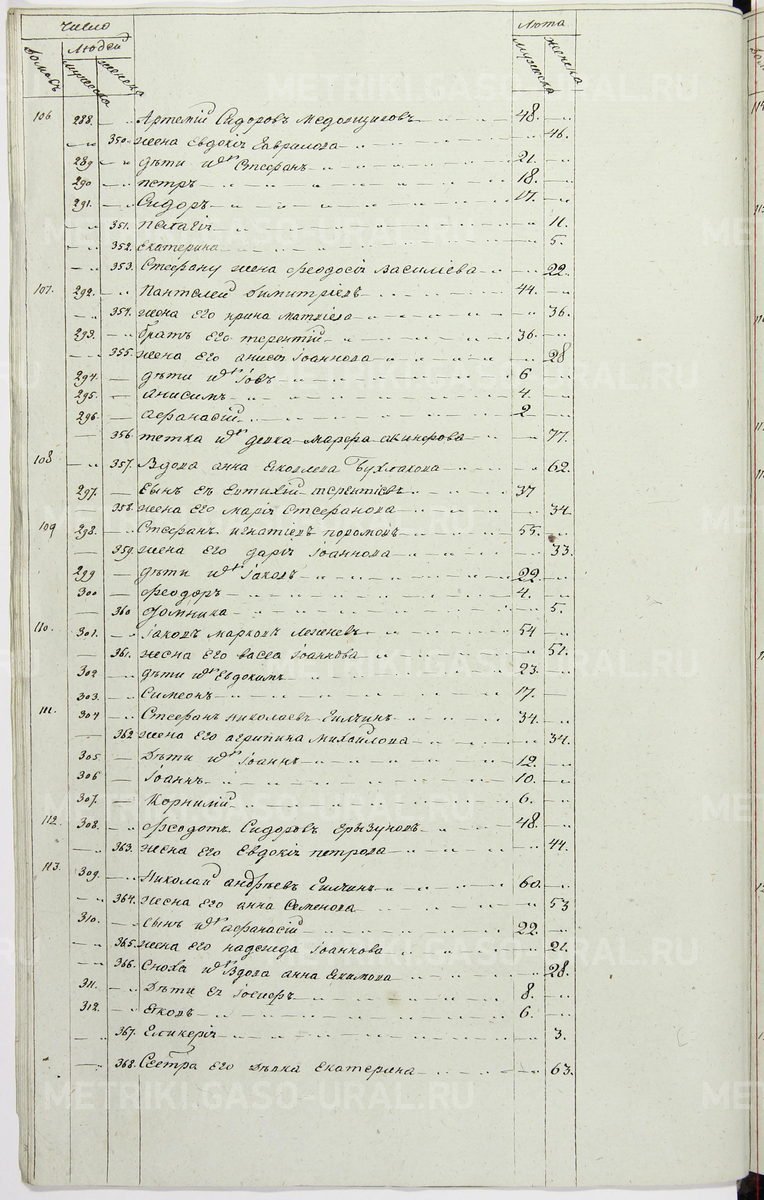 Число
Людей
Домовъ
мужеска
женска
Лѣта
мужеска
женска
106 288. Артемій Сидоровъ 48.
350. жена Евдокіѧ Гаврилова 46.
289 дѣти ихъ Стефанъ 21.
290 петръ 18.
291. Сидоръ 17.
351. Пелагіѧ 11.
352. екатерина 5.
353. Стефану жена феодосіѧ василіева 22
107. 292. Пантелей димитріевъ 44.
354. жена его ирина матвіева 36.
293. братъ его терентій 36.
355. жена его анисіѧ іоаннова 28
294. дѣти ихъ Іовъ 6
295. анисимъ 4.
296. афанасій 2
356. тетка ихъ девка марфа 77.
108 357. Вдова анна Яковлева 62.
297. Сынъ еѧ Евтихій терентіевъ 37
358. жена его маріѧ Стефанова 34.
109 298. Стефанъ игнатіевъ 55.
359. жена его даріѧ іоаннова 33.
299 дѣти ихъ Іаковъ 22
300 феодоръ 4.
360 домника 5.
110. 301. Іаковъ марковъ 54
361. жена его васса іоаннова 51.
302 дѣти ихъ Евдокимъ 23.
303. Симеонъ 17.
111. 304 Стефанъ николаевъ Гилчинъ 34.
362 жена его агрипина михайлова 34.
305. Дѣти ихъ Іоаннъ 12.
306 Іоаннъ 10.
307. Корнилій 6.
112. 308. феодотъ Сидоровъ 48.
363. жена его Евдокіѧ петрова 44.
113. 309. Николай андрѣевъ Гилчинъ 60.
364. жена его анна Семенова 53
310. Сынъ ихъ афанасій 22.
365. жена его надежда іоаннова 21.
366. Сноха ихъ Вдова анна Екимова 28.
311. Дѣти еѧ Іосифъ 8.
312. Яковъ 6.
367. Гликеріѧ 3.
368. Сестра его дѣвка Екатерина 63.
METRIKI.GASO-URAL.RU